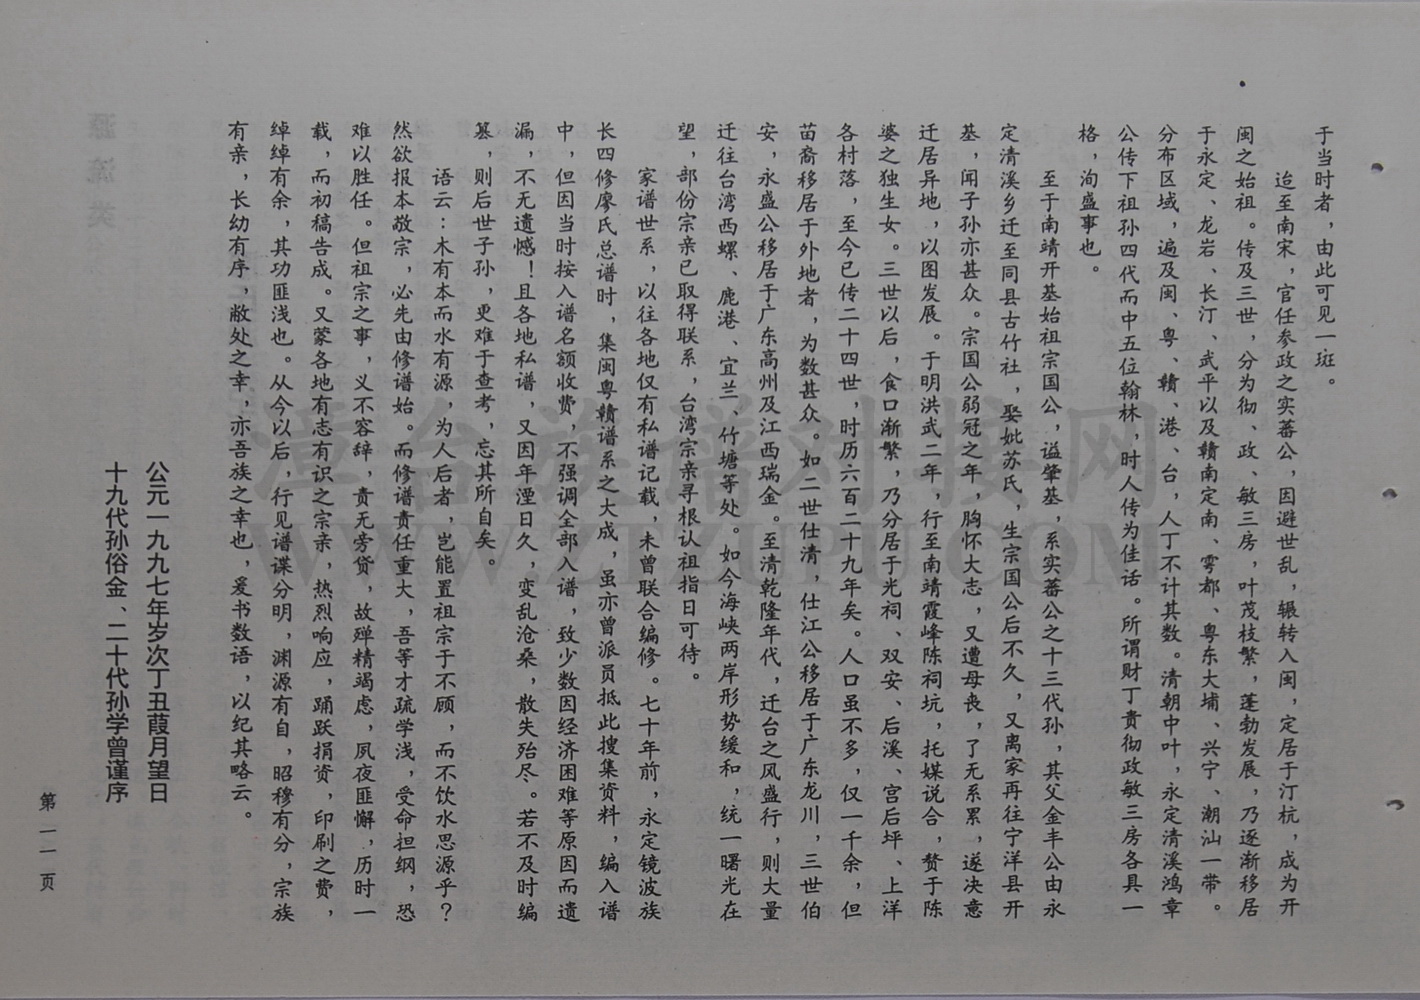 于当时者，由此可见一斑。
迨至南宋，官任参政之实蕃公，因避世乱，辗转入闽，定居于汀杭，成为开
闽之始祖。传及三世，分为彻、政、敏三房，叶茂枝繁，蓬勃发展，乃逐渐移居
于永定、龙岩、长汀、武平以及赣南定南、雩都、粤东大埔、兴宁、潮汕一带。
分布区域，遍及闽、粤、赣、港、台，人丁不计其数。清朝中叶，永定清溪鸿章
公传下祖孙四代而中五位翰林，时人传为佳话。所谓财丁贵彻政敏三房各具一
格，洵盛事也。
至于南靖开基始祖宗国公，谥肇基，系实蕃公之十三代孙，其父金丰公由永
定清溪乡迁至同县古竹社，娶妣苏氏，生宗国公后不久，又离家再往宁洋县开
基，闻子孙亦甚众。宗国公弱冠之年，胸怀大志，又遭母丧，了无系累，遂决意
迁居异地，以图发展。于明洪武二年，行至南靖霞峰陈祠坑，托媒说合，赘于陈
婆之独生女。三世以后，食口渐繁，乃分居于光祠、双安、后溪、宫后坪、上洋
各村落，至今已传二十四世，时历六百二十九年矣。人口虽不多，仅一千余，但
苗裔移居于外地者，为数甚众。如二世仕清，仕江公移居于广东龙川，三世伯
安，永盛公移居于广东高州及江西瑞金。至清乾隆年代，迁台之风盛行，则大量
迁往台湾西螺、鹿港、宜兰、竹塘等处。如今海峡两岸形势缓和，统一曙光在
望，部份宗亲已取得联系，台湾宗亲寻根认祖指日可待。
家谱世系，以往各地仅有私谱记载，未曾联合编修。七十年前，永定镜波族
长四修廖氏总谱时，集闽粤赣谱系之大成，虽亦曾派员抵此搜集资料，编入谱
中，但因当时按入谱名额收费，不强调全部入谱，致少数因经济困难等原因而遗
漏，不无遗憾！且各地私谱，又因年湮日久，变乱沧桑，散失殆尽。若不及时编
纂，则后世子孙，更难于查考，忘其所自矣。
语云：木有本而水有源，为人后者，岂能置祖宗于不顾，而不饮水思源乎？
然欲报本敬宗，必先由修谱始。而修谱责任重大，吾等才疏学浅，受命担纲，恐
难以胜任。但祖宗之事，义不容辞，责无旁贷，故殚精竭虑，夙夜匪懈，历时一
载，而初稿告成。又蒙各地有志有识之宗亲，热烈响应，踊跃捐资，印刷之费，
绰绰有余，其功匪浅也。从今以后，行见谱谍分明，渊源有自，昭穆有分，宗族
有亲，长幼有序，敝处之幸，亦吾族之幸也，爰书数语，以纪其略云。
公元一九九七年岁次丁丑葭月望日
十九代孙俗金、二十代孙学曾谨序
第一一页
源流类
漳台族谱对接网
WWW.ZTZUPU.COM